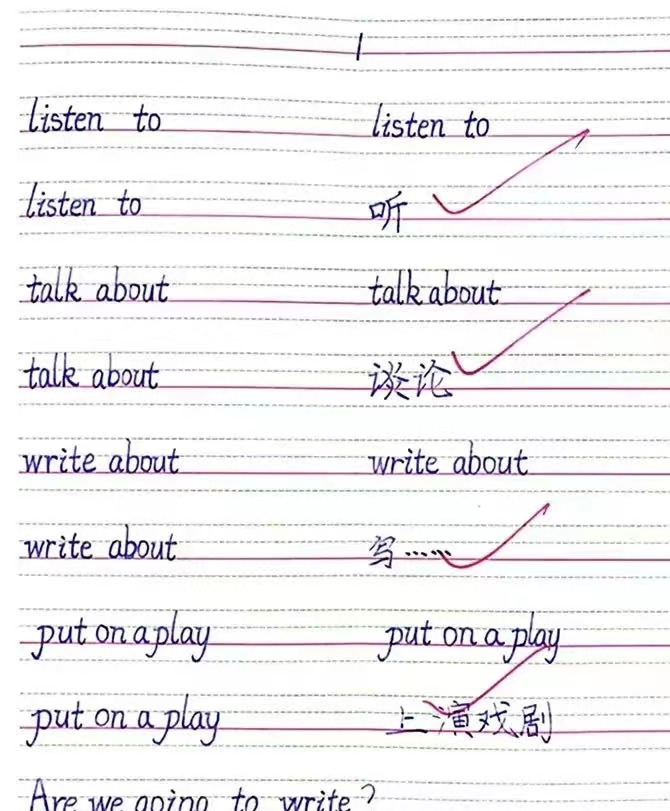 listen to listen to
listen to 听
talk about talk about
talk about 谈论
write about write about
write about 写……
put on a play put on a play
put on a play 上演戏剧
Are we going to write?